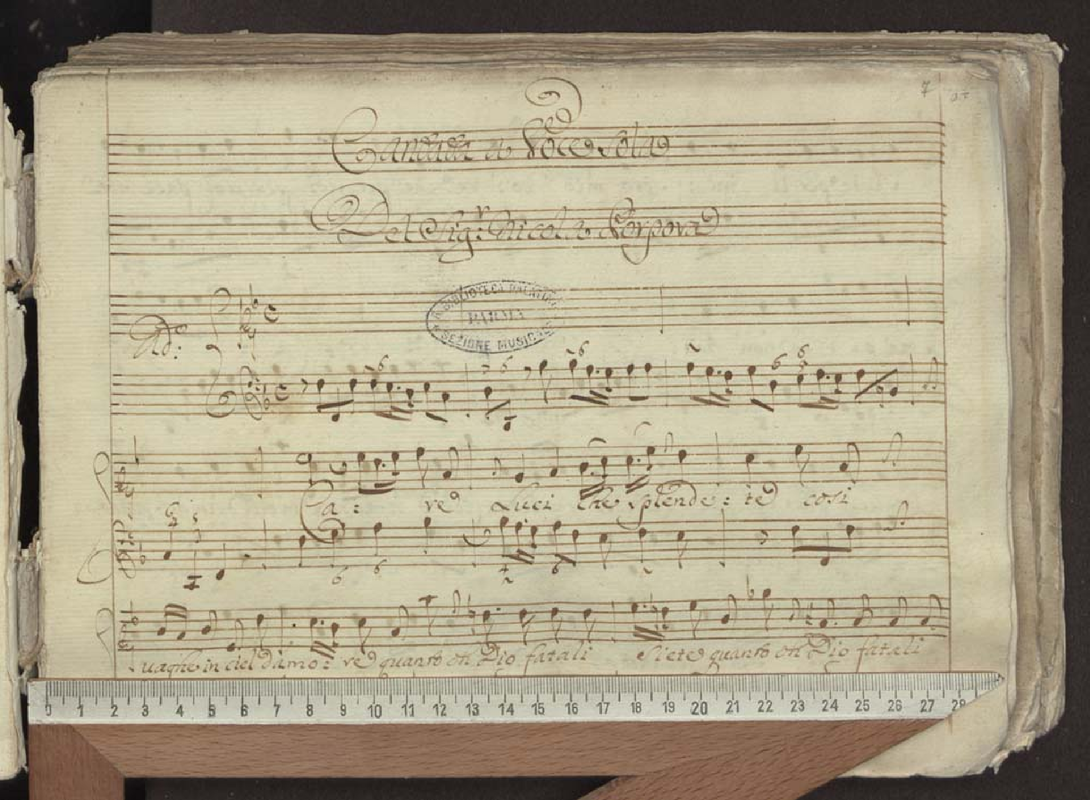 7
Cantata a Voce Sola
Del Sig.r Nicola Porpora
BIBLIOTECA PALATINA
PARMA
SEZIONE MUSICALE
Ad.o
Ca: re Luci che splende: te cosi
uaghe in ciel d'amo: re quanto oh Dio fatali Siete quanto oh Dio fatali
0 1 2 3 4 5 6 7 8 9 10 11 12 13 14 15 16 17 18 19 20 21 22 23 24 25 26 27 28